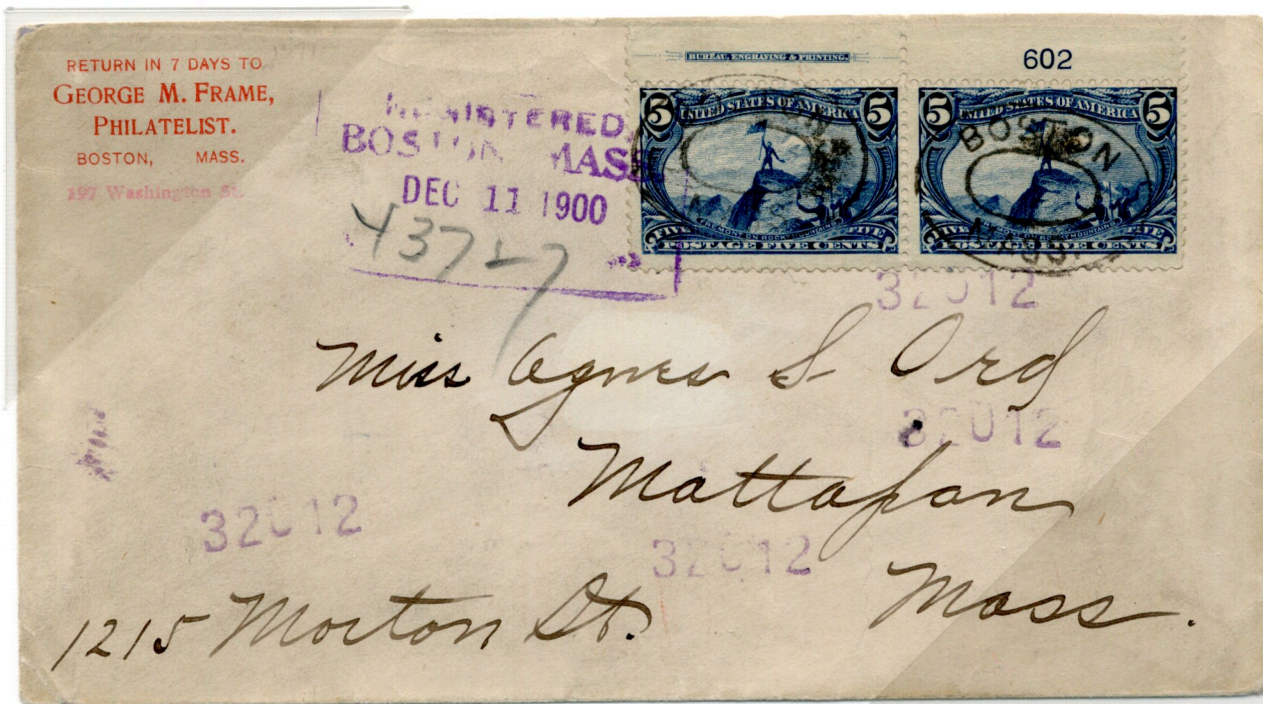 RETURN IN 7 DAYS TO
GEORGE M. FRAME,
PHILATELIST.
BOSTON, MASS.
297 Washington St.
REGISTERED
BOSTON MASS
DEC 11 1900
BUREAU, ENGRAVING & PRINTING.
602
5 UNITED STATES OF AMERICA 5
FIVE FIVE
POSTAGE FIVE CENTS
5 UNITED STATES OF AMERICA 5
FIVE FIVE
POSTAGE FIVE CENTS
BOSTON
32012
Miss Agnes S Ord
32012
Mattapan
32012
32012
Mass.
1215 Morton St.